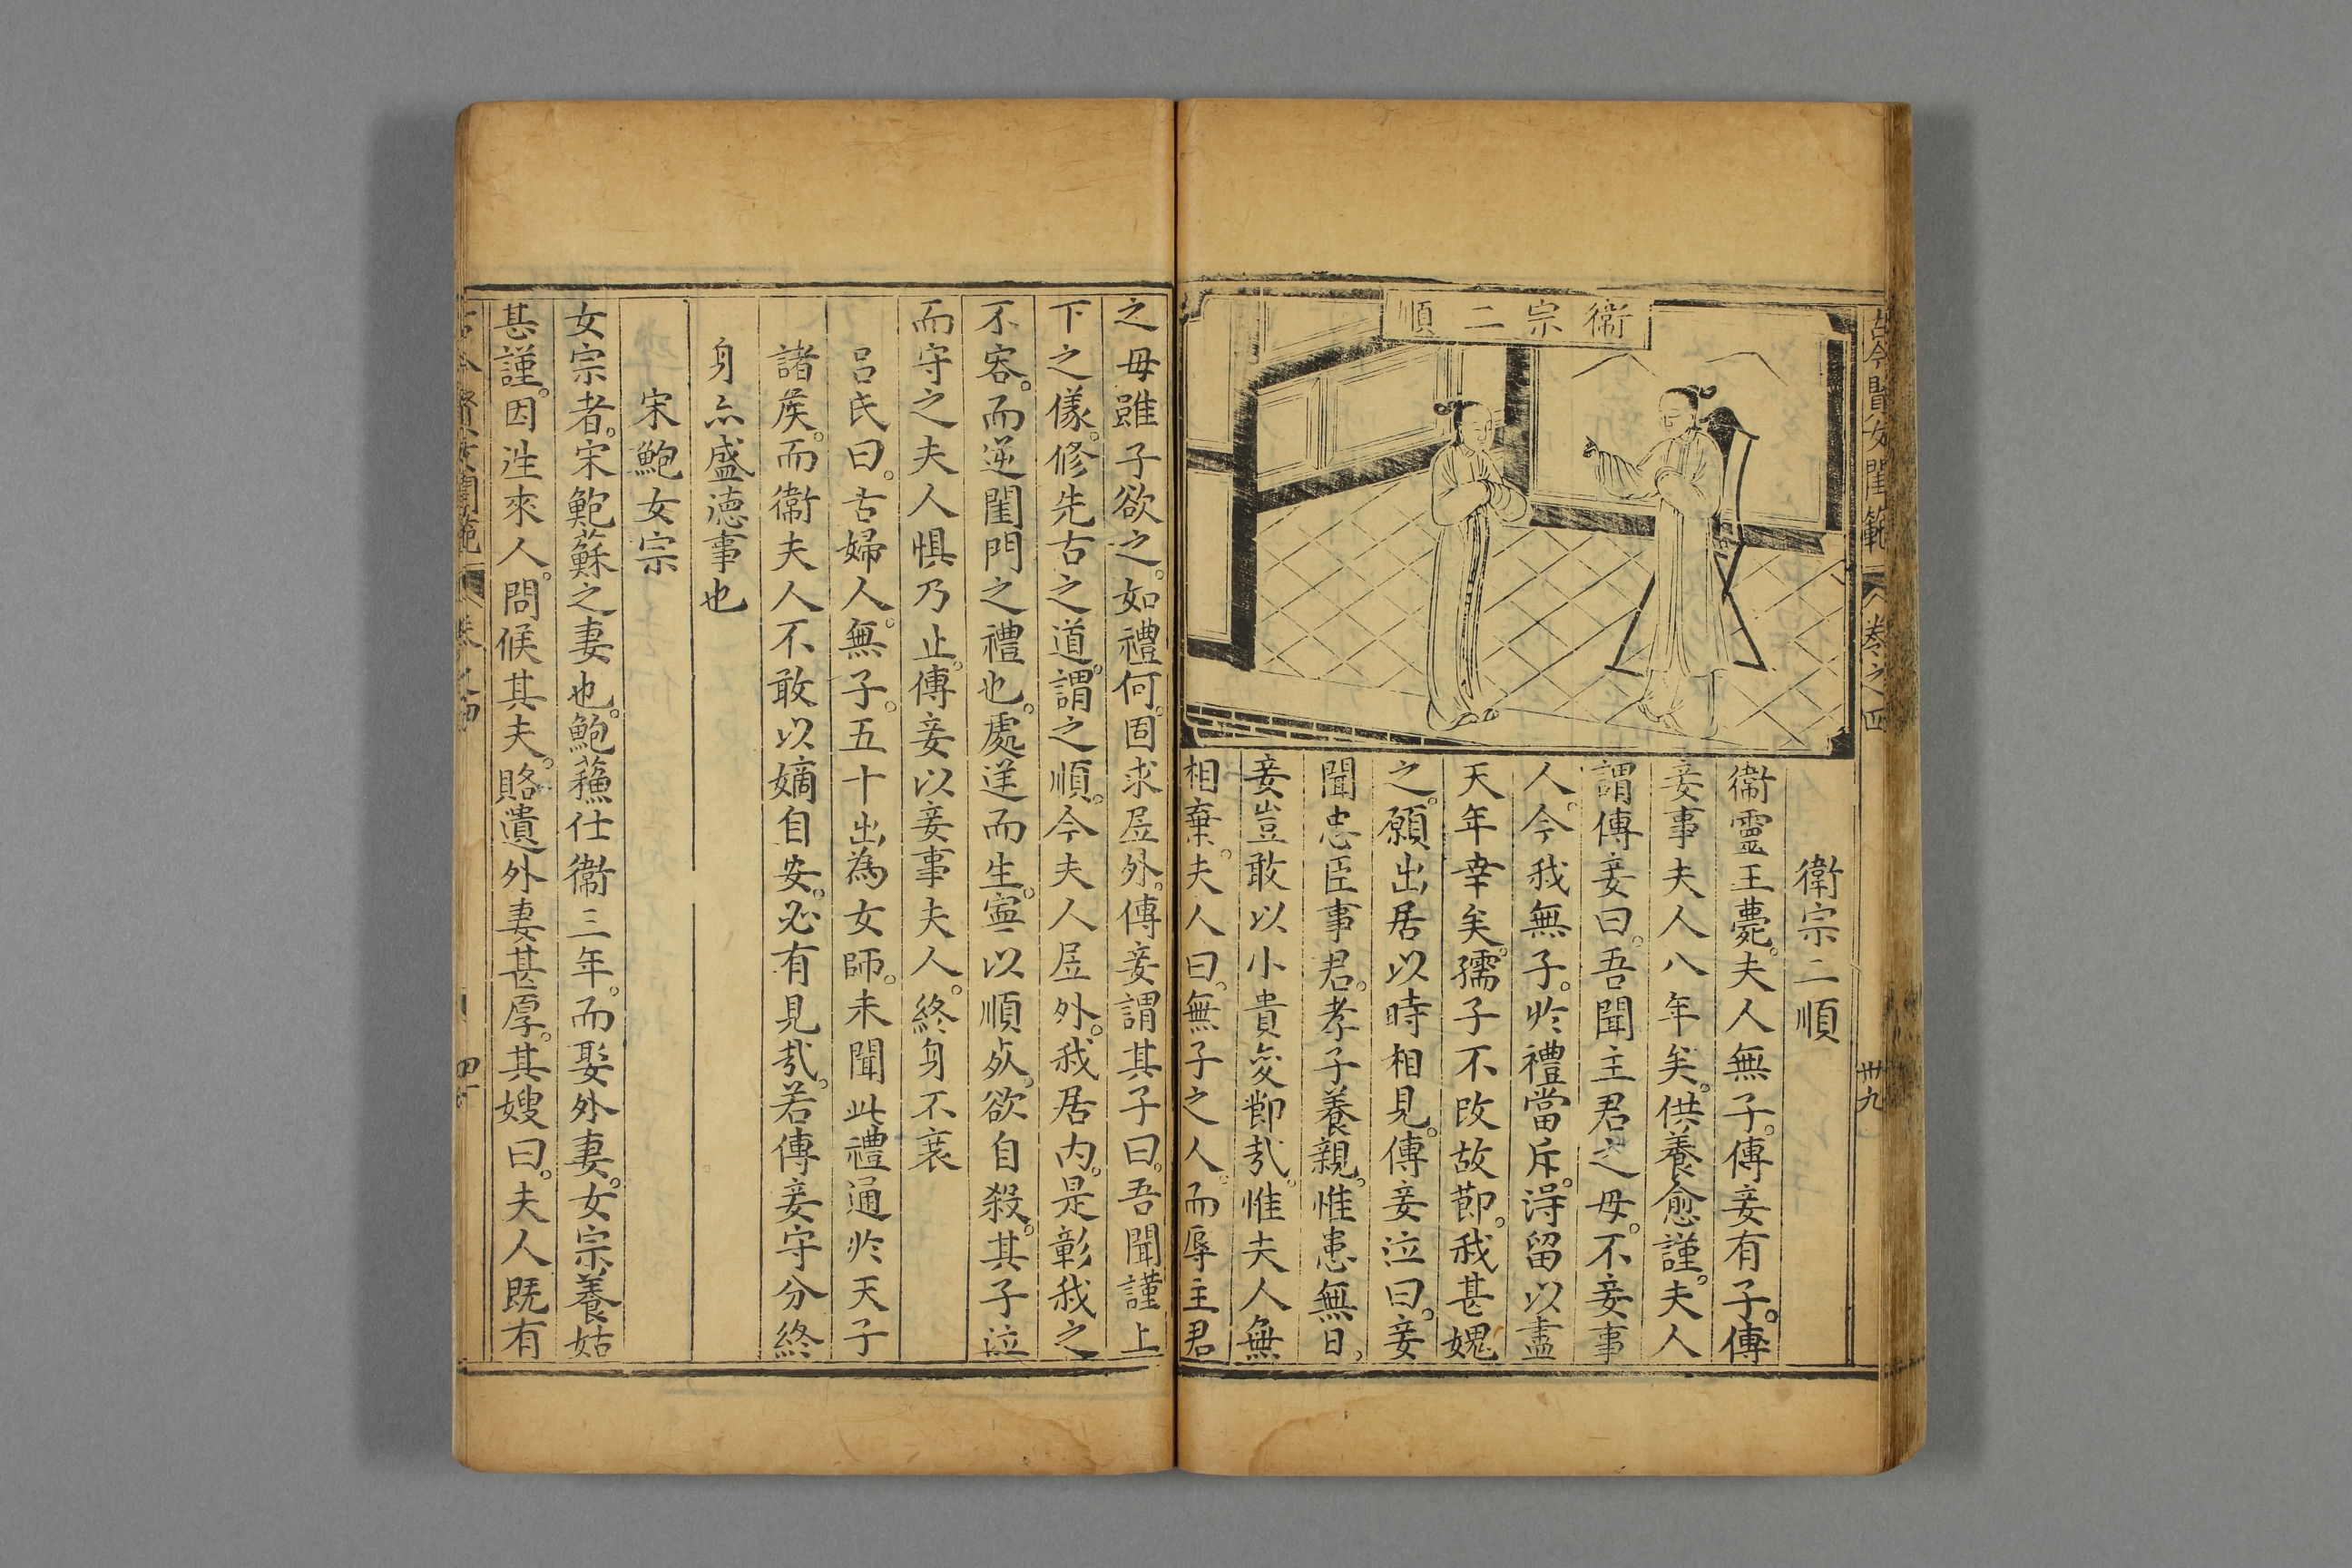 古今賢女閨範 卷之四 卅九
衞宗二順
衞宗二順
衞靈王薨。夫人無子。傅妾有子。傅
妾事夫人八年矣。供養愈謹。夫人
謂傅妾曰。吾聞主君之母。不妾事
人。今我無子。於禮當斥。得留以盡
天年幸矣。孺子不改故節。我甚媿
之。願出居以時相見。傅妾泣曰。妾
聞忠臣事君。孝子養親。惟患無日。
妾豈敢以小貴変節㢤。惟夫人無
相棄。夫人曰。無子之人。而辱主君
之母雖子欲之。如禮何。固求居外。傅妾謂其子曰。吾聞謹上
下之儀。修先古之道。謂之順。今夫人居外。我居内。是彰我之
不容。而逆閨門之禮也。處逆而生。寧以順死。欲自殺。其子泣
而守之夫人惧乃止。傅妾以妾事夫人。終身不衰
呂氏曰。古婦人。無子。五十出為女師。未聞此禮通於天子
諸矦。而衞夫人不敢以嫡自安。必有見㢤。若傅妾守分終
身亦盛德事也
宋鮑女宗
女宗者。宋鮑蘇之妻也。鮑蘓仕衞三年。而娶外妻。女宗養姑
甚謹。因徃來人。問候其夫。賂遺外妻甚厚。其嫂曰。夫人既有